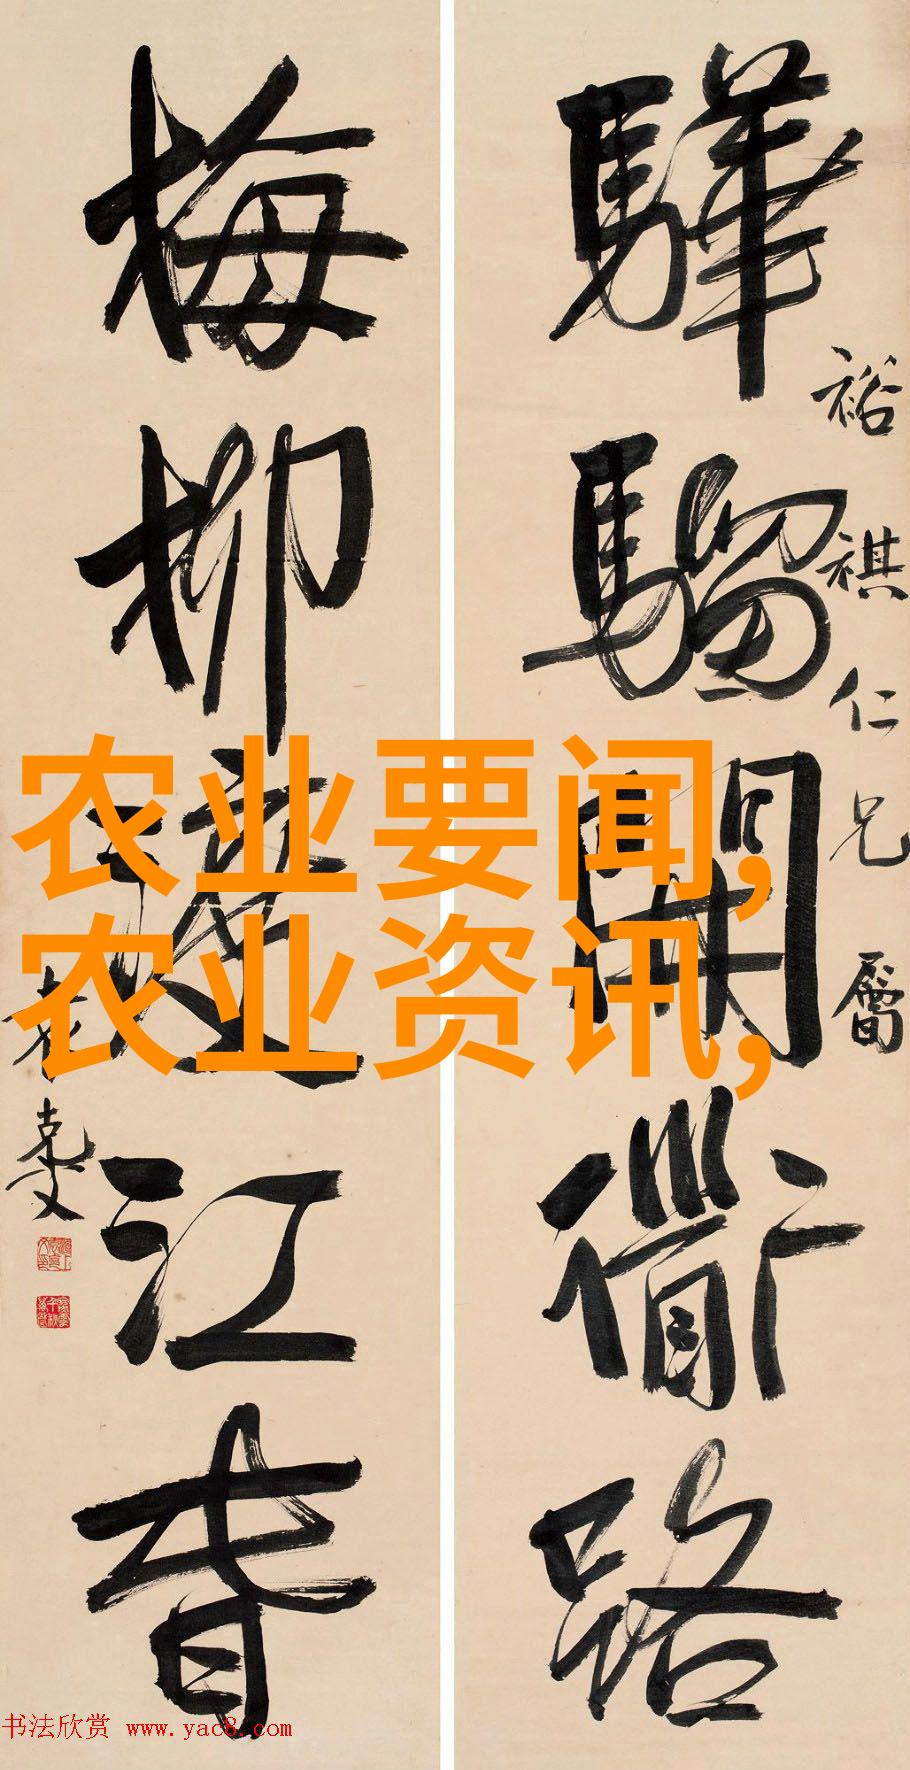 裕祺仁兄屬
驊騮開衜路
梅柳渡江春
袁克文
农业要闻,
农业资讯,
书法欣赏 www.yac8.com